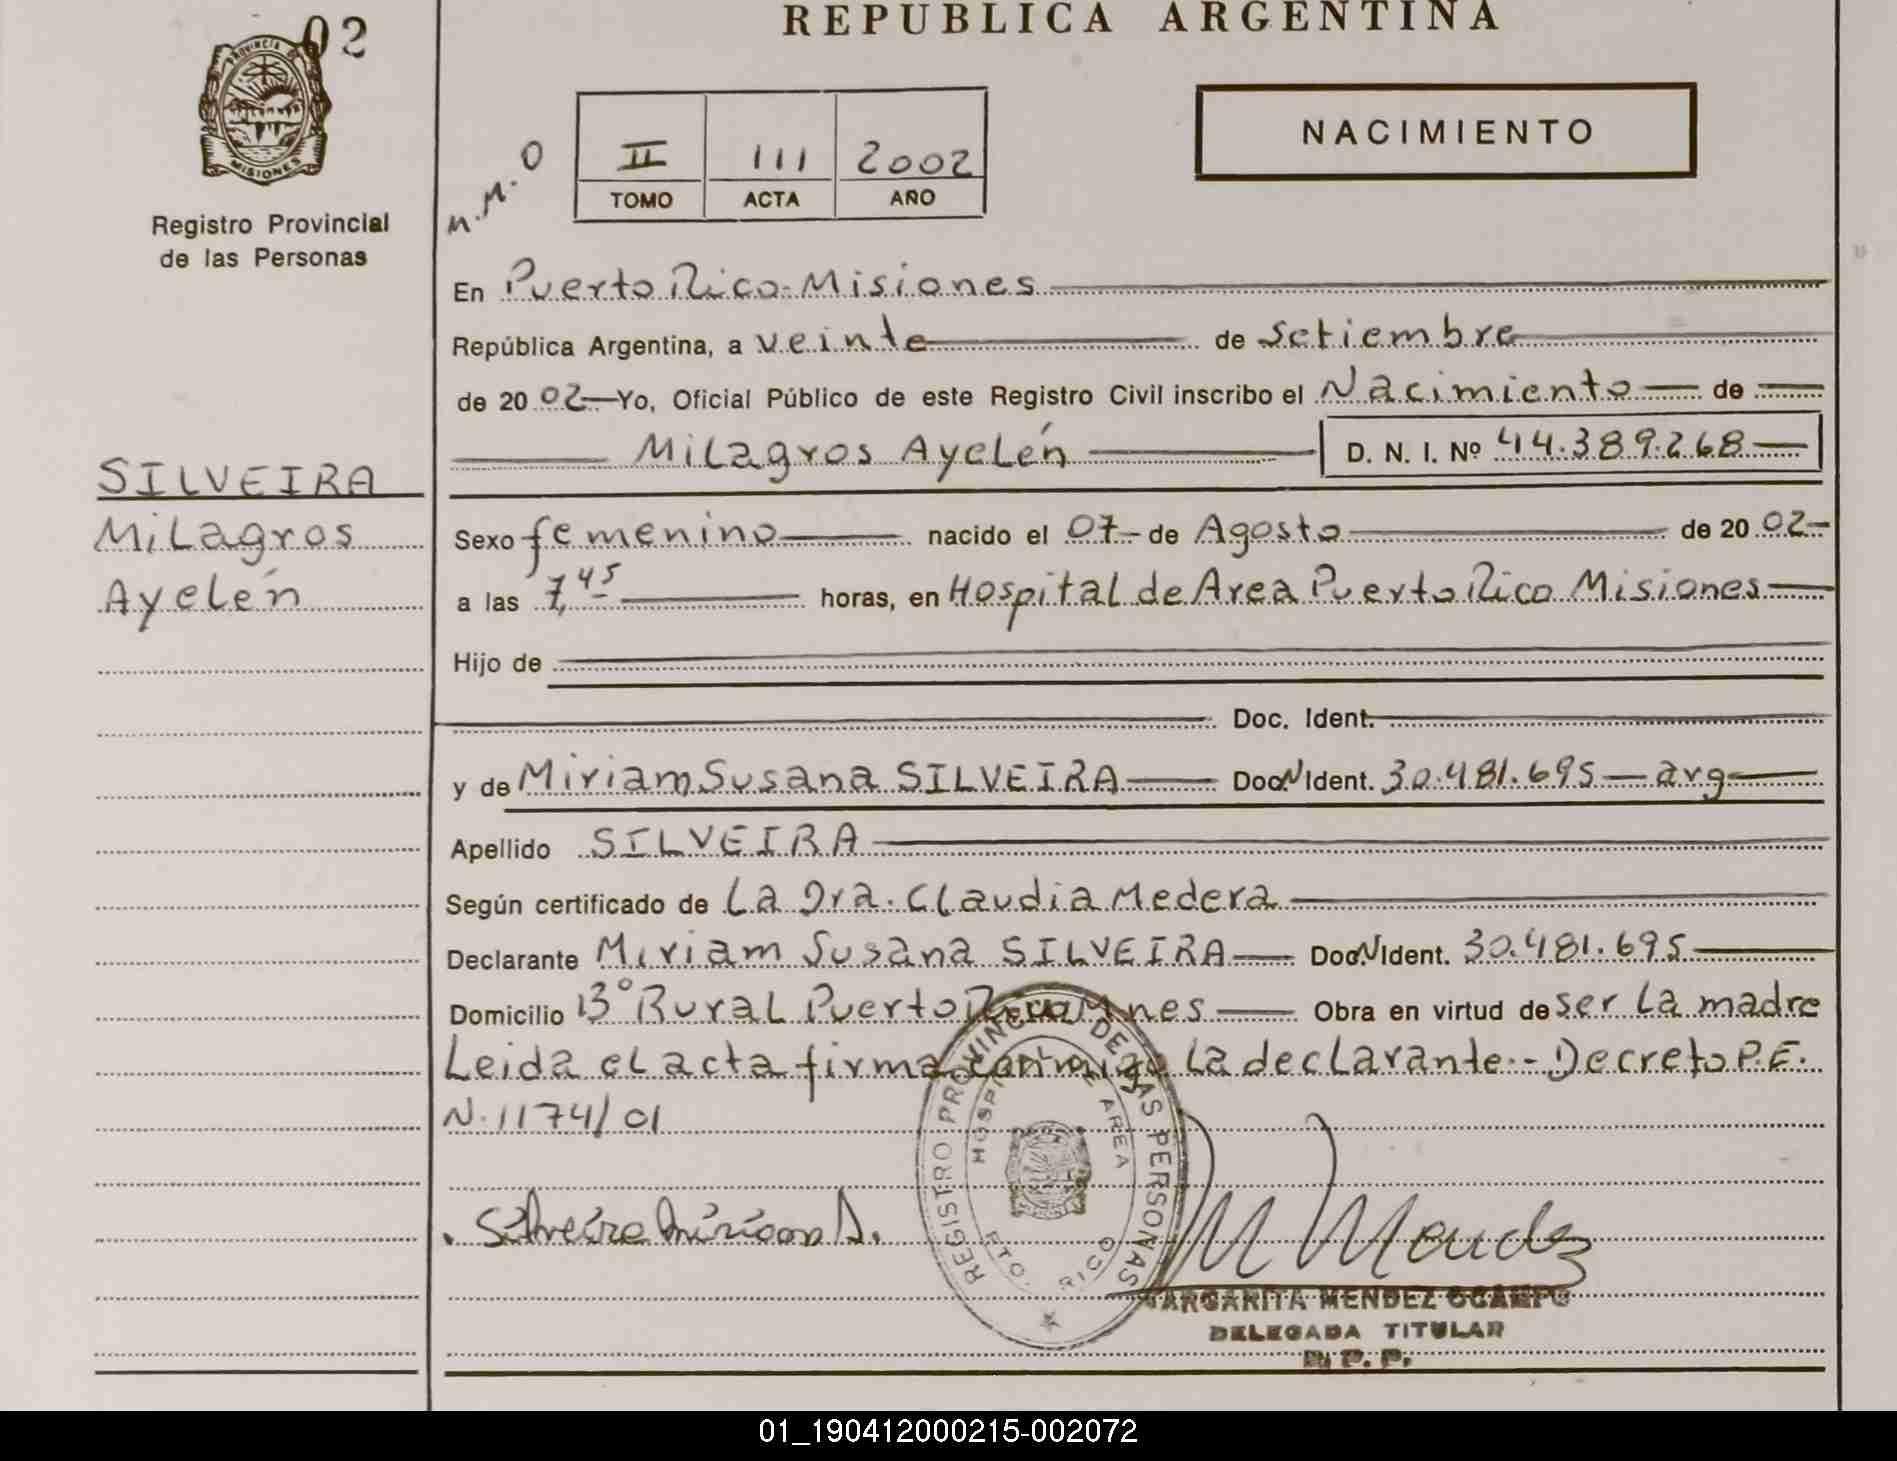 02
PROVINCIA DE
MISIONES
Registro Provincial
de las Personas
SILVEIRA
Milagros
Ayelén
REPUBLICA ARGENTINA
M.M.O
II 111 2002
TOMO ACTA AÑO
NACIMIENTO
En Puerto Rico-Misiones
República Argentina, a veinte de Setiembre
de 2002 Yo, Oficial Público de este Registro Civil inscribo el Nacimiento de
Milagros Ayelén D. N. I. Nº 44.389.268
Sexo femenino nacido el 07 de Agosto de 2002
a las 7,45 horas, en Hospital de Area Puerto Rico Misiones
Hijo de
Doc. Ident.
y de Miriam Susana SILVEIRA Doc.N Ident. 30.481.695 arg
Apellido SILVEIRA
Según certificado de La Dra. Claudia Medera
Declarante Miriam Susana SILVEIRA Doc.N Ident. 30.481.695
Domicilio 13° Rural Puerto Rico Mnes Obra en virtud de ser la madre
Leida el acta firma conmigo la declarante.- Decreto P.E.
N.1174/01
REGISTRO PROVINCIAL DE LAS PERSONAS
HOSPITAL DE AREA
PTO. RICO
Silveira Miriam S.
M Mendez
MARGARITA MENDEZ OCAMPO
DELEGADA TITULAR
R. P. P.
01_190412000215-002072